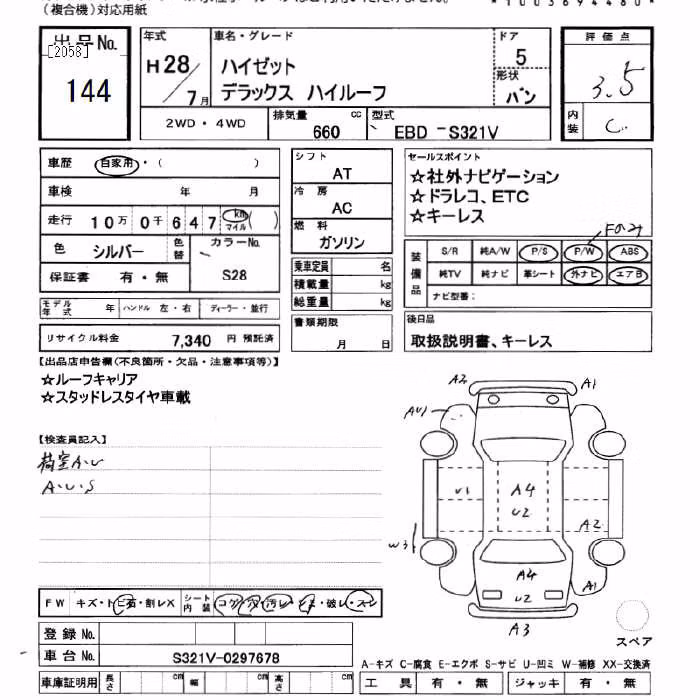 (複合機)対応用紙
出品No.
[2058]
144
年式
H28/7月
車名・グレード
ハイゼット
デラックス ハイルーフ
ドア
5
形状
バン
評価点
3.5
内装
C
2WD・4WD
排気量
660 cc
型式
EBD -S321V
車歴 自家用・( )
車検 年 月
走行 10万0千647 km マイル ( )
色 シルバー 色替
カラーNo.
S28
保証書 有・無
モデル年式 年 ハンドル 左・右 ディーラー・並行
リサイクル料金 7,340 円 預託済
シフト
AT
冷房
AC
燃料
ガソリン
乗車定員 名
積載量 kg
総重量 kg
書類期限
月 日
セールスポイント
☆社外ナビゲーション
☆ドラレコ、ETC
☆キーレス
Fのみ
装備品
S/R 純A/W P/S P/W ABS
純TV 純ナビ 革シート 外ナビ エアB
ナビ型番:
後日品
取扱説明書、キーレス
【出品店申告欄(不良箇所・欠品・注意事項等)】
☆ルーフキャリア
☆スタッドレスタイヤ車載
【検査員記入】
荷室A・U
A・U・S
A2 A1
AU1
U1
A4
U2
A2
W3
A4
U2
A1
A3
スペア
FW キズ・ト ビ石・割レX
シート内装 コゲ・穴・汚レ・シミ・破レ・スレ
登録No.
車台No. S321V-0297678
車庫証明用 長さ cm 幅 cm 高さ cm
A-キズ C-腐食 E-エクボ S-サビ U-凹ミ W-補修 XX-交換済
工具 有・無 ジャッキ 有・無